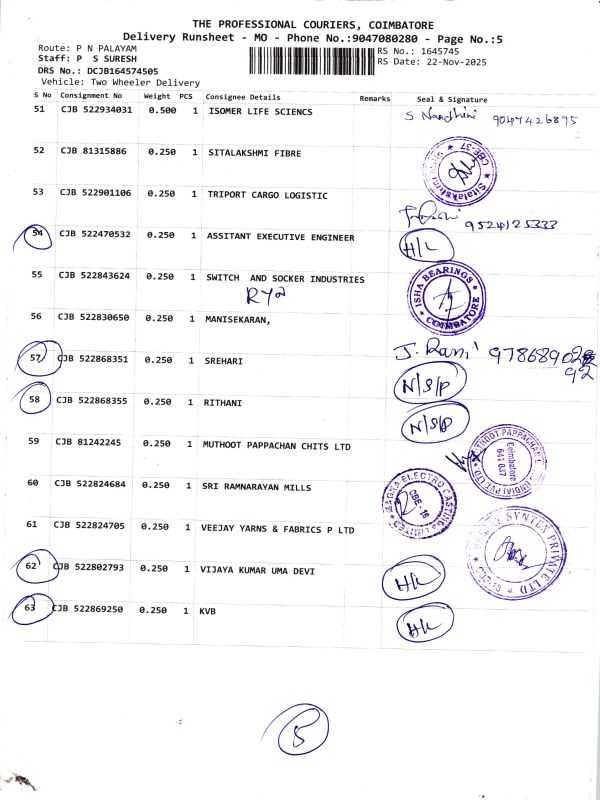 THE PROFESSIONAL COURIERS, COIMBATORE
Delivery Runsheet - MO - Phone No.:9047080280 - Page No.:5
Route: P N PALAYAM
RS No.: 1645745
Staff: P S SURESH
RS Date: 22-Nov-2025
DRS No.: DCJB164574505
Vehicle: Two Wheeler Delivery
S No Consignment No Weight PCS Consignee Details Remarks Seal & Signature
51 CJB 522934031 0.500 1 ISOMER LIFE SCIENCS S. Nandhini 9047426895
52 CJB 81315886 0.250 1 SITALAKSHMI FIBRE Sitalakshmi CBE-37
53 CJB 522901106 0.250 1 TRIPORT CARGO LOGISTIC 9524125333
54 CJB 522470532 0.250 1 ASSITANT EXECUTIVE ENGINEER H/L
55 CJB 522843624 0.250 1 SWITCH AND SOCKER INDUSTRIES ISHA BEARINGS COIMBATORE
56 CJB 522830650 0.250 1 MANISEKARAN, J. Rani
57 CJB 522868351 0.250 1 SREHARI N/S/P
58 CJB 522868355 0.250 1 RITHANI N/S/P
59 CJB 81242245 0.250 1 MUTHOOT PAPPACHAN CHITS LTD MUTHOOT PAPPACHAN (INDIA) PVT LTD Coimbatore 641 037
60 CJB 522824684 0.250 1 SRI RAMNARAYAN MILLS MAGNA ELECTRO CASTINGS LIMITED CBE-18
61 CJB 522824705 0.250 1 VEEJAY YARNS & FABRICS P LTD SYNTEX PRIVATE LTD
62 CJB 522802793 0.250 1 VIJAYA KUMAR UMA DEVI H/L
63 CJB 522869250 0.250 1 KVB H/L
5